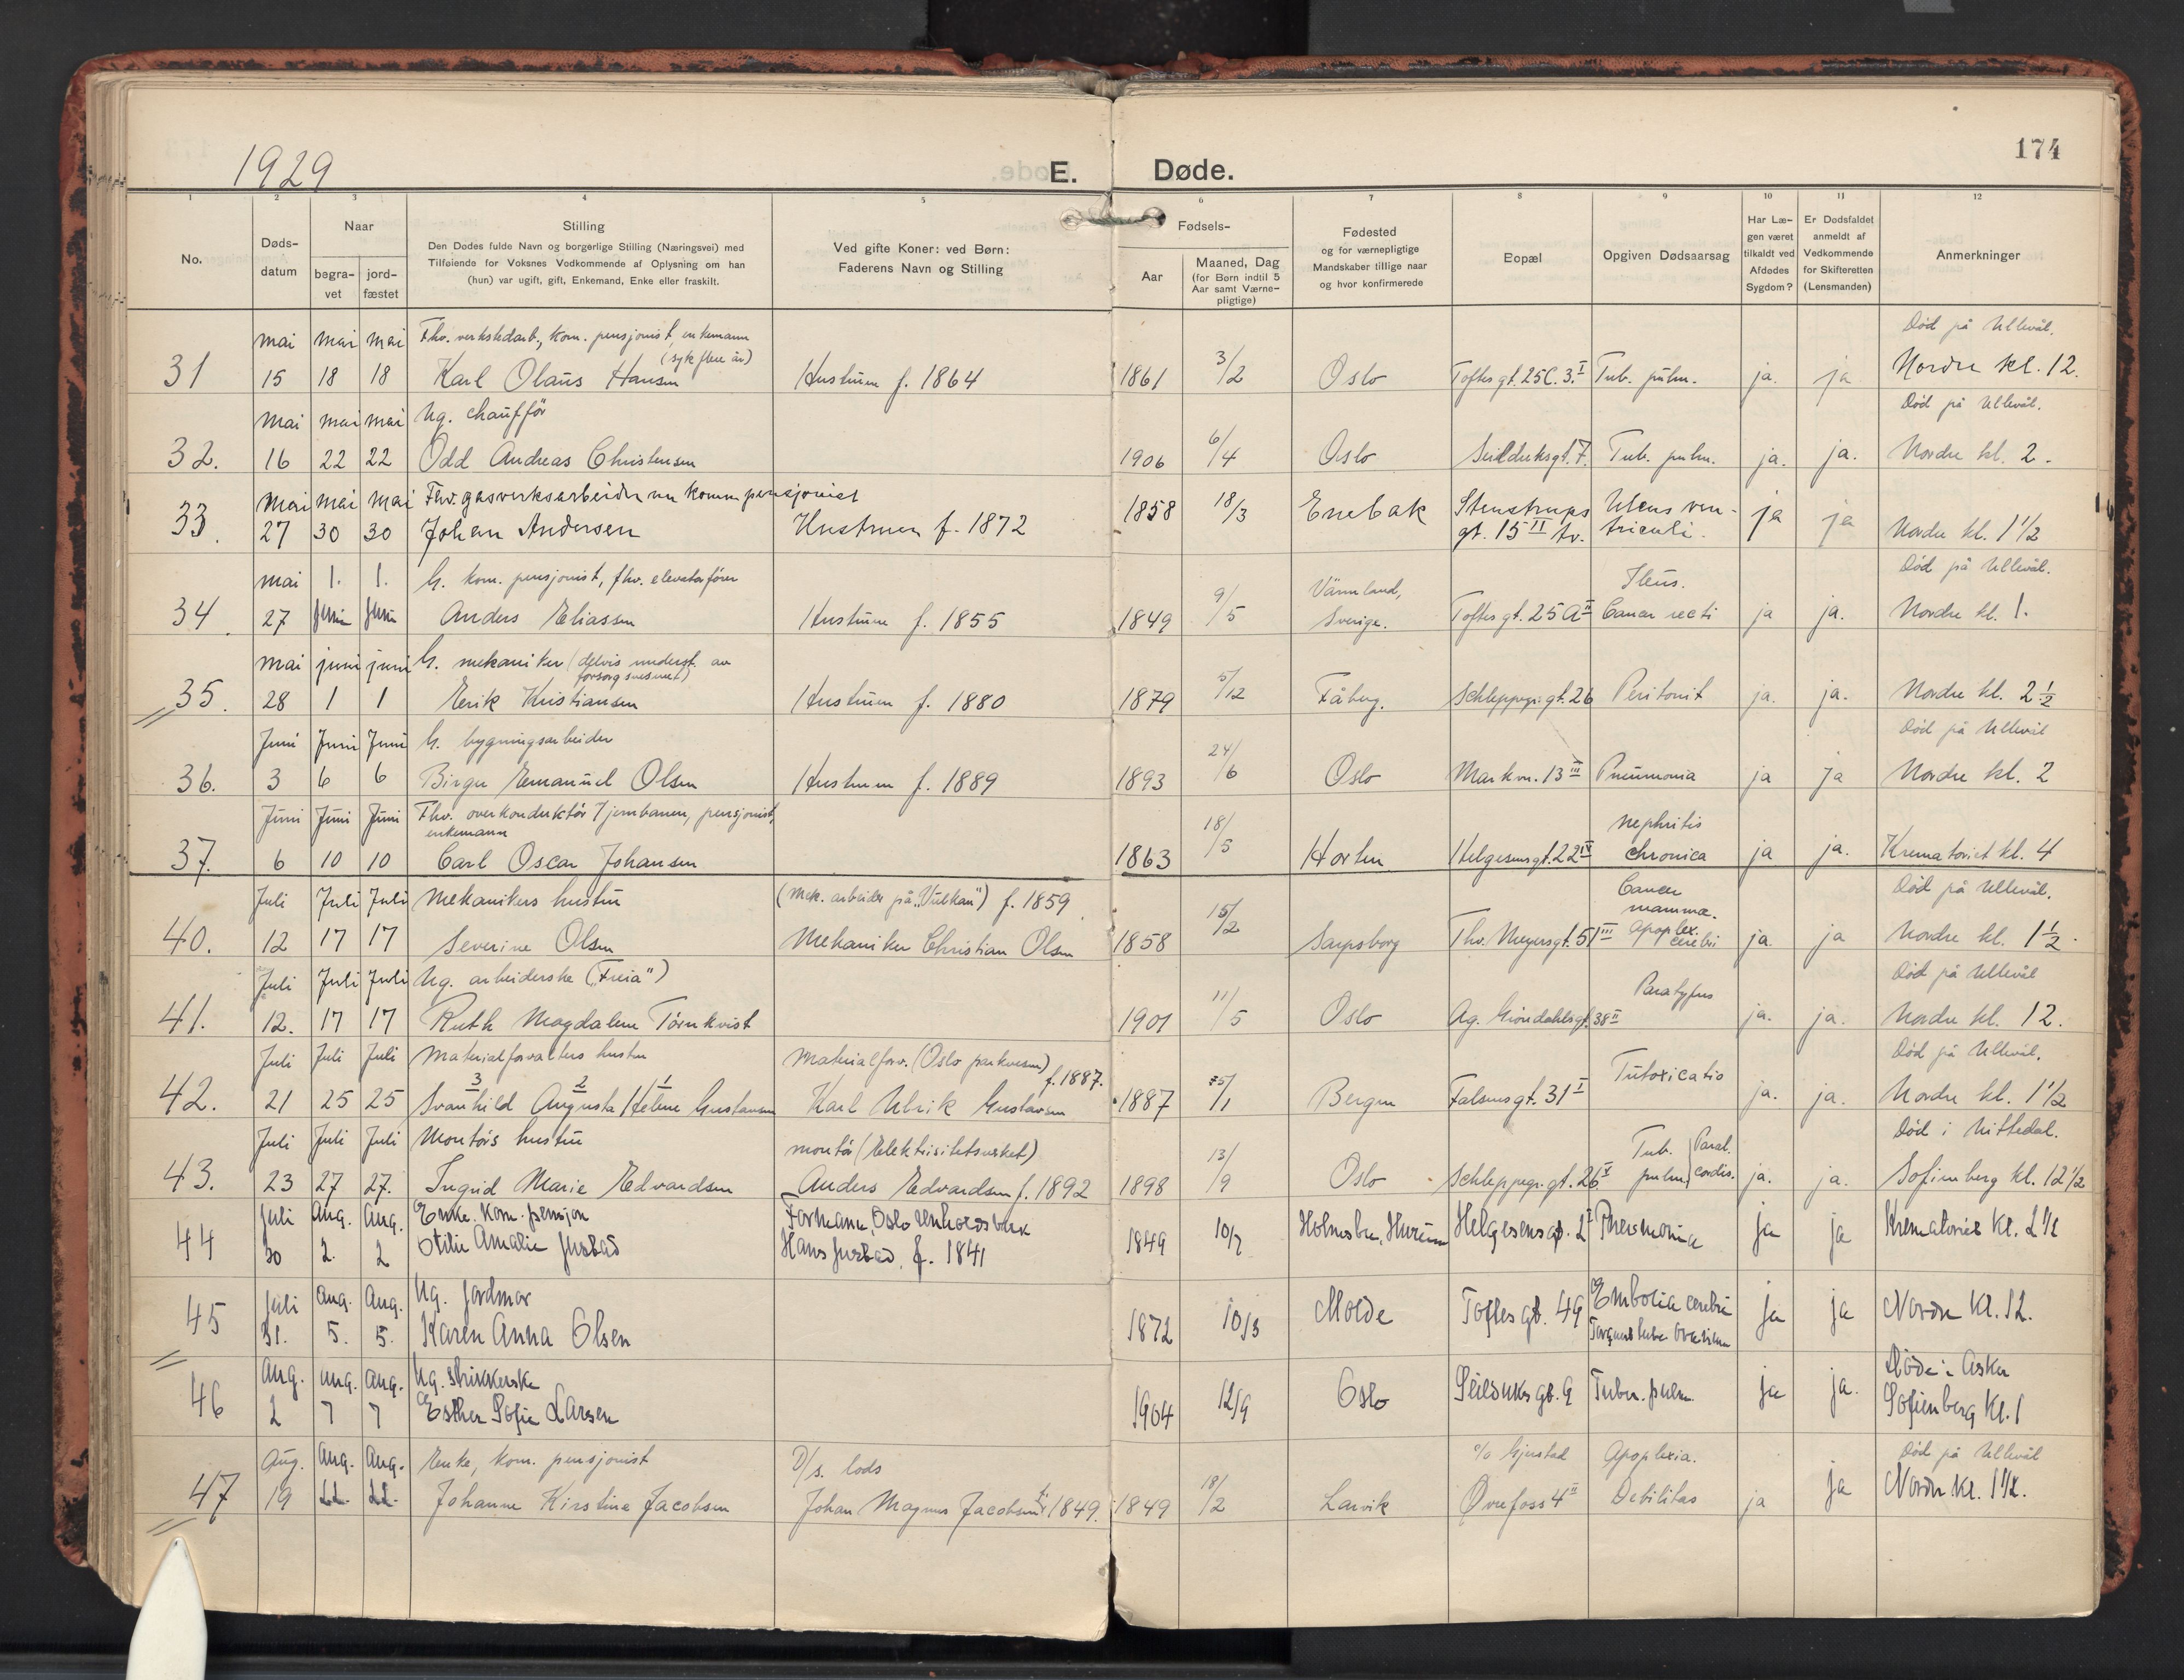 1929
E. Døde.
174
1 2 3 4 5 6 7 8 9 10 11 12
No.
Døds-
datum
Naar
begra-
vet
jord-
fæstet
Stilling
Den Dødes fulde Navn og borgerlige Stilling (Næringsvei) med
Tilføiende for Voksnes Vedkommende af Oplysning om han
(hun) var ugift, gift, Enkemand, Enke eller fraskilt.
Ved gifte Koner: ved Børn:
Faderens Navn og Stilling
Fødsels-
Aar
Maaned, Dag
(for Børn indtil 5
Aar samt Værne-
pligtige)
Fødested
og for værnepligtige
Mandskaber tillige naar
og hvor konfirmerede
Bopæl
Opgiven Dødsaarsag
Har Læ-
gen været
tilkaldt ved
Afdødes
Sygdom?
Er Dødsfaldet
anmeldt af
Vedkommende
for Skifteretten
(Lensmanden)
Anmerkninger
mai mai mai Fhv. verkstedarb., kom. pensjonist, enkemann Død på Ullevål.
(syk flere år)
31 15 18 18 Karl Olaus Hansen Hustruen f. 1864 1861 3/2 Oslo Toftes gt. 25C. 3. I Tub. pulm. ja. ja Nordre kl. 12.
mai mai mai Ug. chauffør Død på Ullevål.
32. 16 22 22 Odd Andreas Christensen 1906 6/4 Oslo Seilduksgt. 7. Tub. pulm. ja. ja. Nordre kl. 2.
mai mai mai Fhv. gasverksarbeider nu komm pensjonist
33. 27 30 30 Johan Andersen Hustruen f. 1872 1858 18/3 Enebak Stenstrups Ulcus ven- ja ja
gt. 15 II tv. triculi. Nordre kl. 1 1/2
mai 1. 1. G. kom. pensjonist, fhv. elevatorfører Värmland, Ileus. Død på Ullevål.
34. 27 juni juni Anders Eliassen Hustruen f. 1855 1849 9/5 Sverige. Toftes gt. 25 A II Cancer recti ja ja. Nordre kl. 1.
mai juni juni G. mekaniker (delvis underst. av
forsorgsvesenet)
35. 28 1 1 Erik Kristiansen Hustruen f. 1880 1879 5/12 Fåberg. Schleppegr. gt. 26 Peritonit ja. ja. Nordre kl. 2 1/2
Juni Juni Juni G. bygningsarbeider Død på Ullevål
36. 3 6 6 Birger Emanuel Olsen Hustruen f. 1889 1893 24/6 Oslo Markvn. 13 III Pneumonia ja ja Nordre kl. 2
Juni Juni Juni Fhv. overkonduktør v/ jernbanen, pensjonist, nephritis
enkemann
37. 6 10 10 Carl Oscar Johansen 1863 18/5 Horten Helgesensgt. 22 IV chronica ja ja. Krematoriet kl. 4
Juli Juli Juli Mekanikers hustru (mek. arbeider på "Vulkan") f. 1859 Cancer Død på Ullevål.
mamma.
40. 12 17 17 Severine Olsen Mekaniker Christian Olsen 1858 15/2 Sarpsborg Thv. Meyersgt. 51 III apoplex. cerebri ja. ja Nordre kl. 1 1/2.
Juli Juli Juli Ug. arbeiderske ("Freia") Paratyfus Død på Ullevål
41. 12. 17 17 Ruth Magdalene Törnkvist 1901 11/5 Oslo Ag. Gröndahlsgt. 38 II ja. ja. Nordre kl. 12.
Juli Juli Juli Materialforvalters hustru Materialforv. (Oslo parkvesen) f. 1887. Død på Ullevål.
3 2 1
42. 21 25 25 Svanhild Augusta Helene Gustavsen Karl Ulrik Gustavsen 1887 /1 Bergen Falsensgt. 31 I Intoxicatio ja. ja. Nordre kl. 1 1/2
Juli Juli Juli Montørs hustru montør (Elektrisitetsverket) Tub. Paral. Død i Nittedal.
43. 23 27 27. Ingrid Marie Edvardsen Anders Edvardsen f. 1892 1898 13/9 Oslo Schleppegr. gt. 26 I pulm. cordis. ja. ja. Sofienberg kl. 12 1/2
juli Aug. Aug. Enke. Kom. pensjon Formann, Oslo renholdsverk
44 30 2 2 Otilie Amalie Justad Hans Justad, f. 1841 1849 10/7 Holmsbu, Hurum Helgesens gt. 2 I Pneumonia ja ja Krematoriet Kl. 2 1/2
juli Aug. Aug. Ug. jordmor
45 31. 5. 5. Karen Anna Olsen 1872 10/3 Molde Toftes gt. 49 Embolia cerebri ja ja Nordre Kl. 12.
Aug. aug. Aug. Ug. strikkerske Døde i Asker
46 2 7 7 Esther Sofie Larsen 1904 12/9 Oslo Seilduks gt. 9 Tuber. pulm. ja ja. Sofienberg Kl. 1
Aug. Aug. Aug. Enke, kom. pensjonist D/s. lods c/o Gjerstad Apoplexia. Død på Ullevål
47 19 22 22 Johanne Kirstine Jacobsen Johan Magnus Jacobsen f. 1849. 1849 18/2 Larvik Øvrefoss 4 II Debilitas ja ja Nordre Kl. 1 1/2.